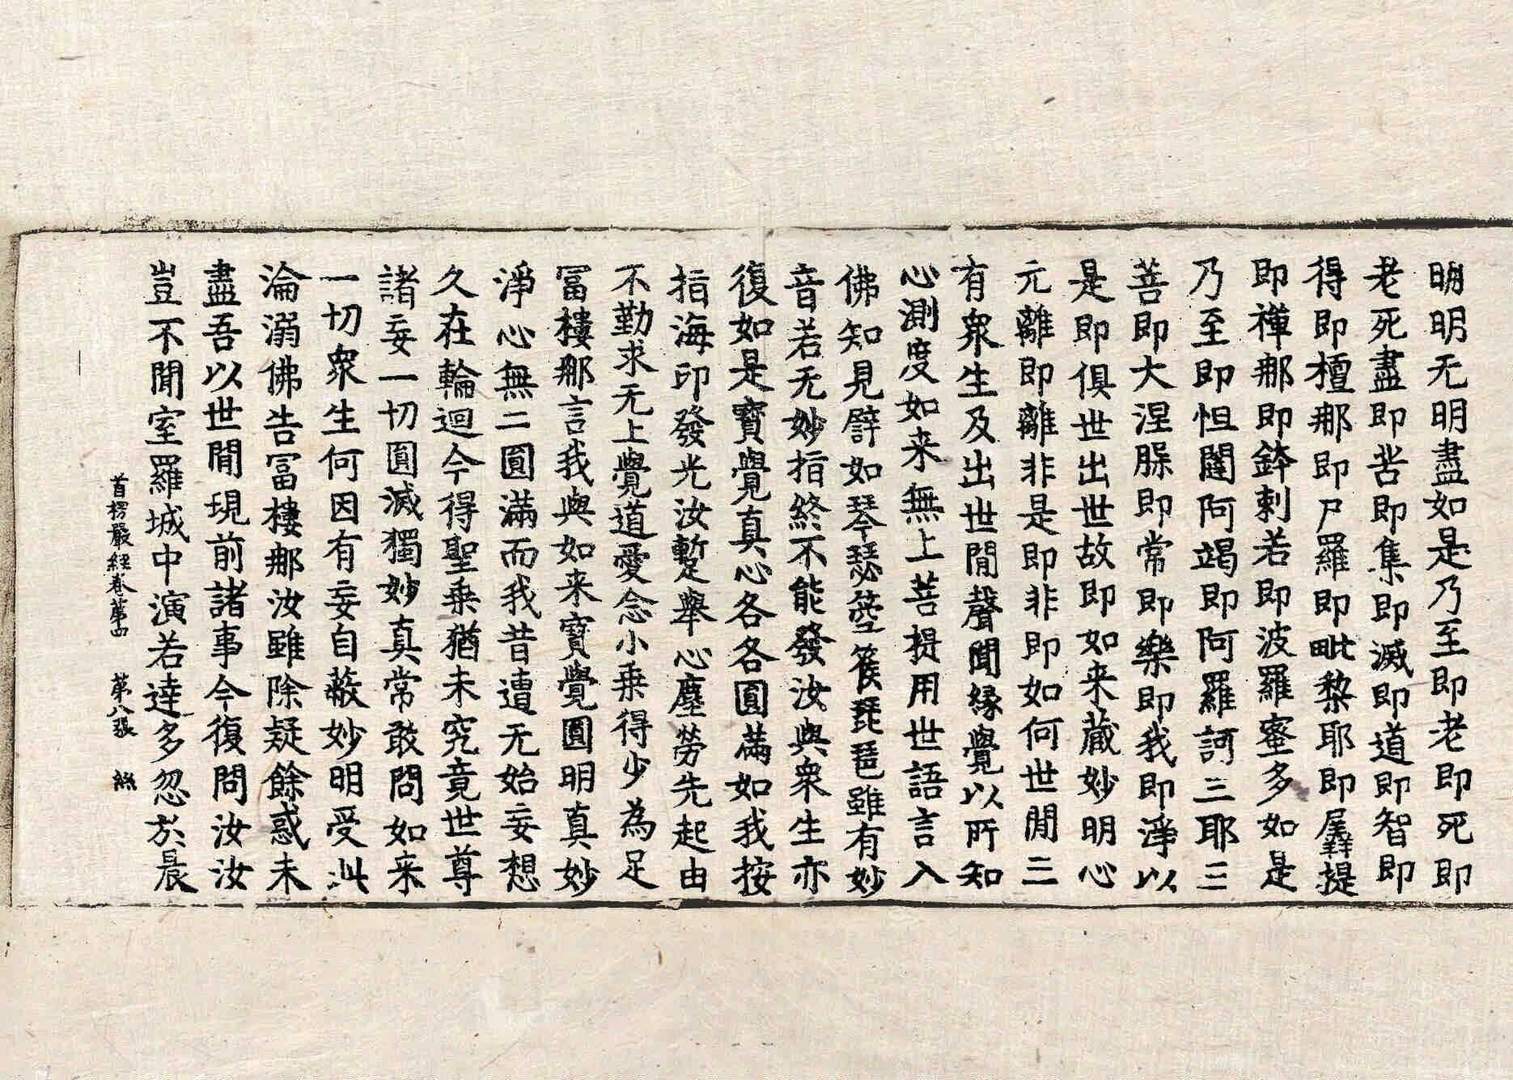 明明无明盡如是乃至即老即死即
老死盡即苦即集即滅即道即智即
得即檀那即尸羅即毗黎耶即羼提
即禪那即鉢剌若即波羅蜜多如是
乃至即怛闥阿竭即阿羅訶三耶三
菩即大涅槃即常即樂即我即淨以
是即俱世出世故即如来蔵妙明心
元離即離非是即非即如何世閒三
有衆生及出世閒聲聞緣覺以所知
心測度如来無上菩提用世語言入
佛知見譬如琴瑟箜篌琵琶雖有妙
音若无妙指終不能發汝與衆生亦
復如是寶覺真心各各圓滿如我按
指海印發光汝暫舉心塵勞先起由
不勤求无上覺道愛念小乗得少為足
冨樓那言我與如来寶覺圓明真妙
淨心無二圓滿而我昔遭无始妄想
久在輪迴今得聖乗猶未究竟世尊
諸妄一切圓滅獨妙真常敢問如来
一切衆生何因有妄自蔽妙明受此
淪溺佛告冨樓那汝雖除疑餘惑未
盡吾以世閒現前諸事今復問汝汝
豈不聞室羅城中演若達多忽於晨
首楞嚴經卷第四 第八張